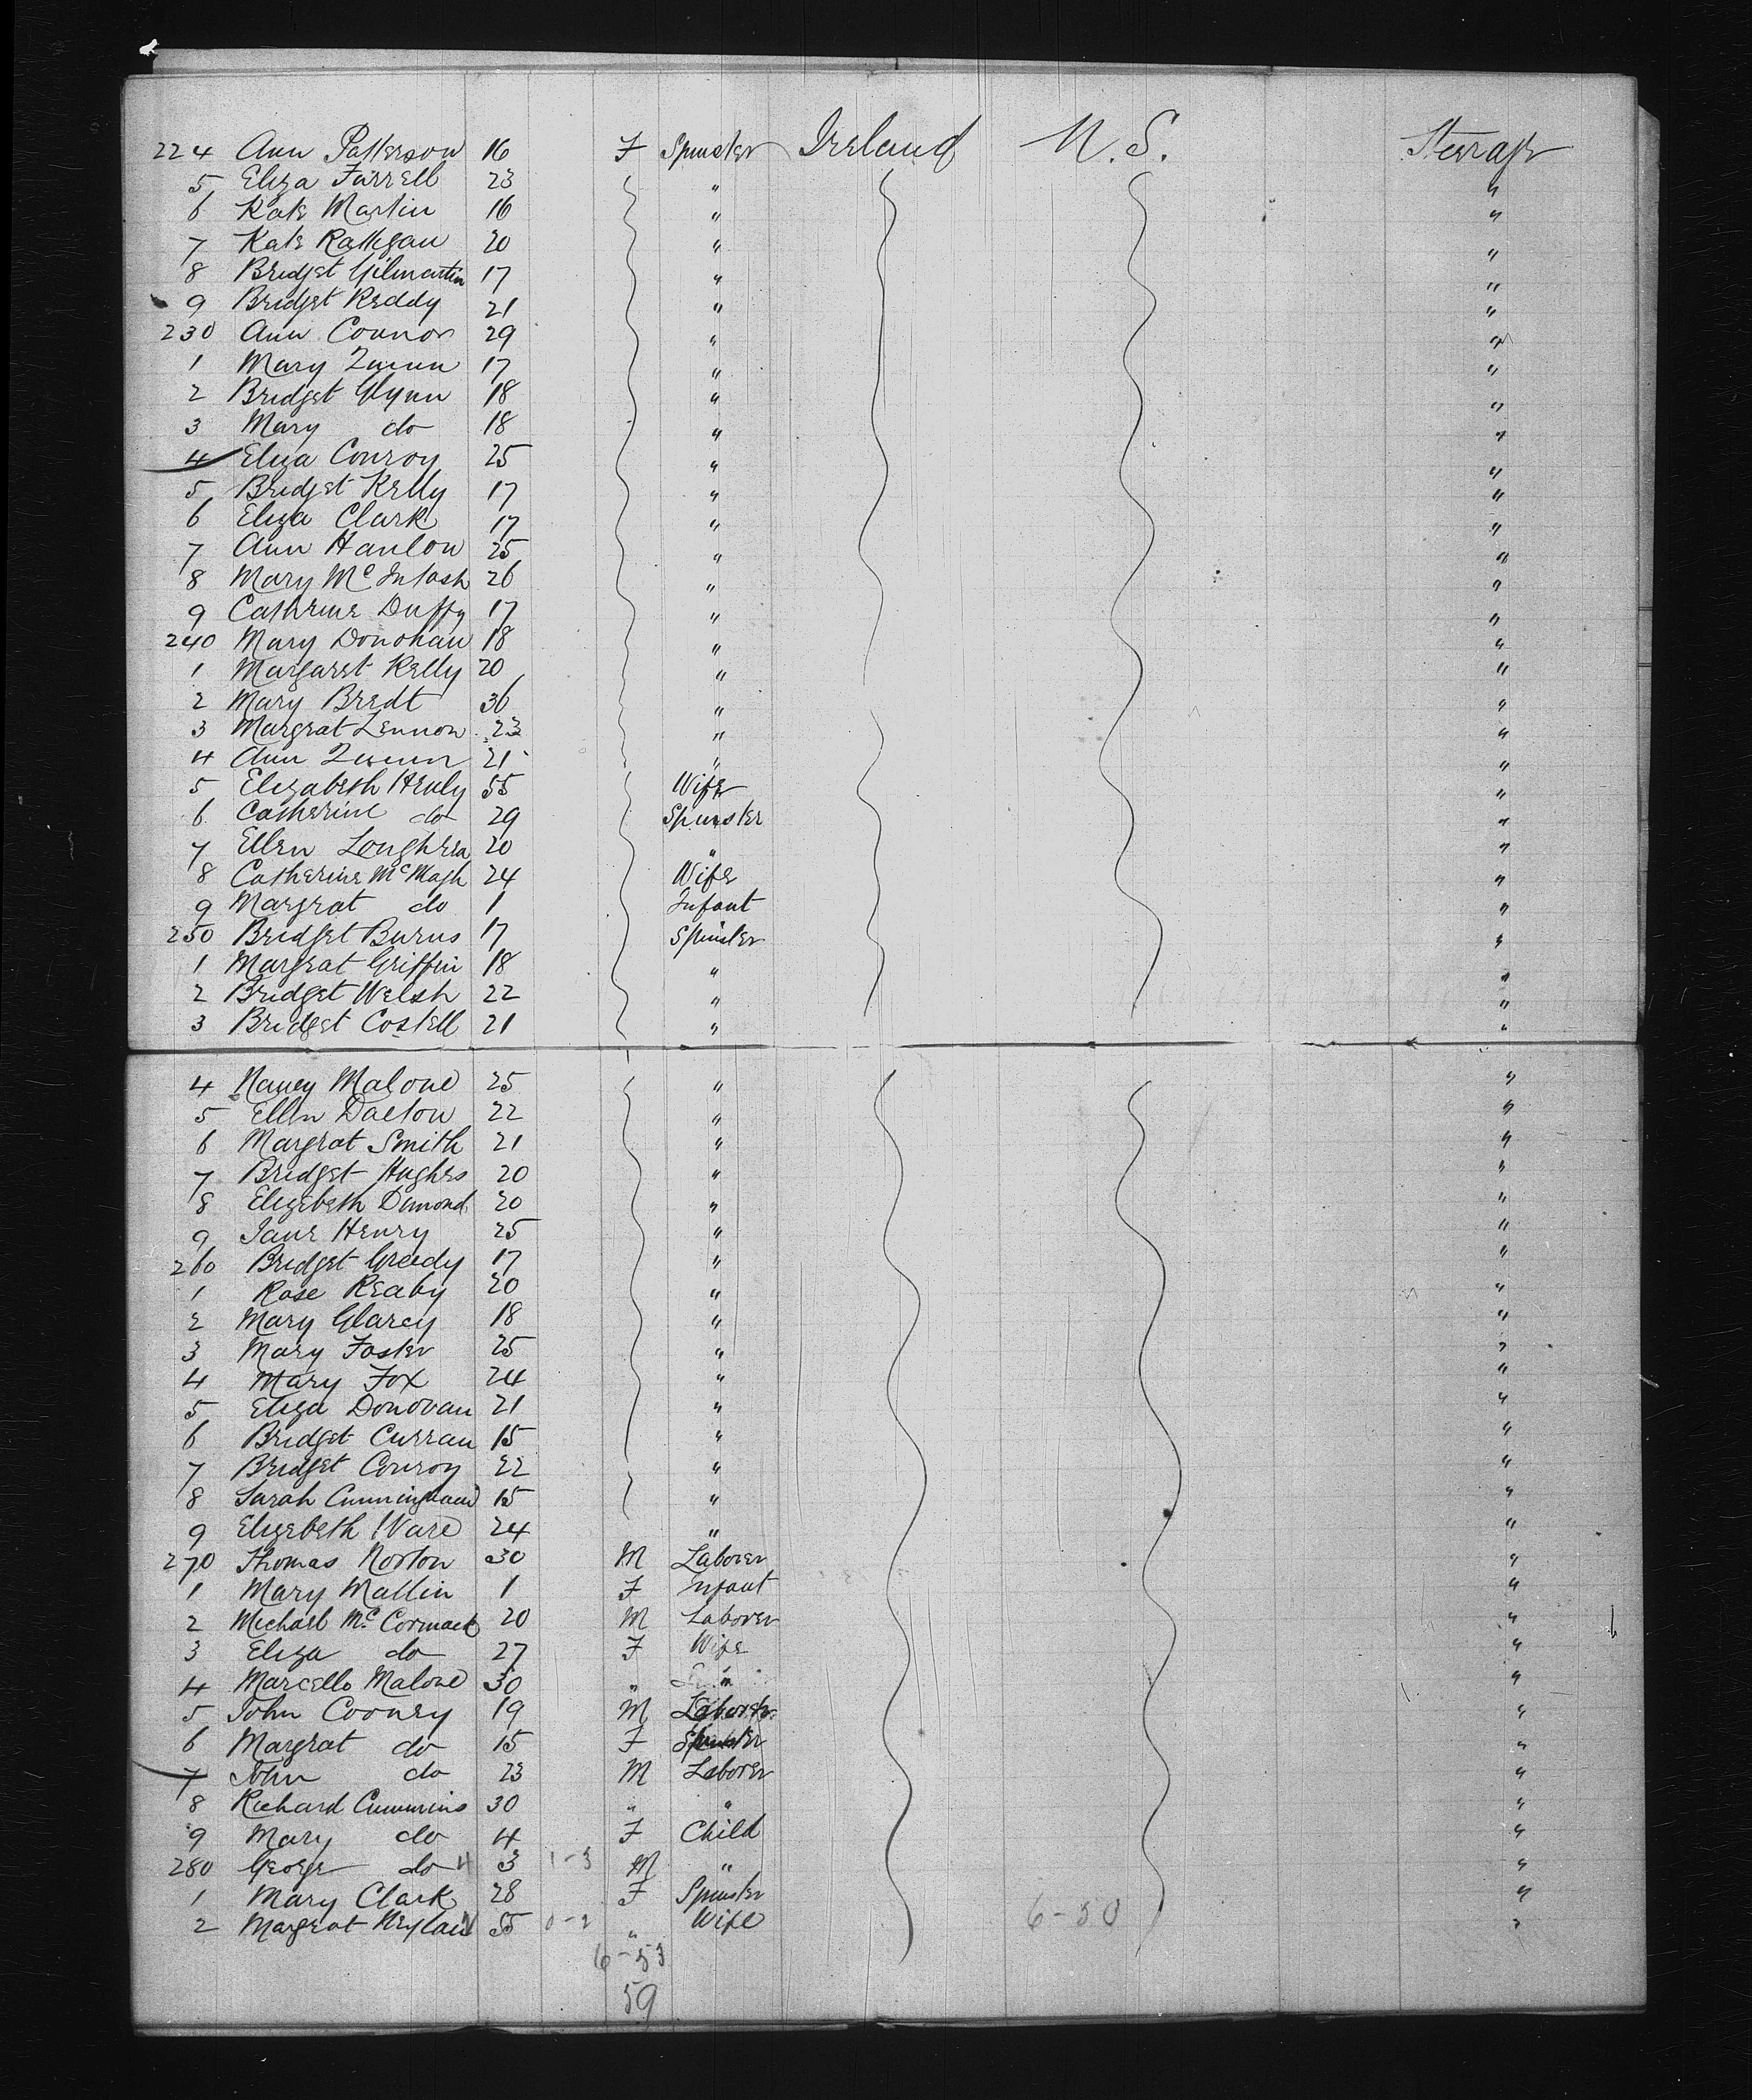 224 Ann Patterson 16 F Spinster Ireland U.S. Steerage
5 Eliza Farrell 23 " "
6 Kate Martin 16 " "
7 Kate Rattigan 20 " "
8 Bridget Gilmartin 17 " "
9 Bridget Reddy 21 " "
230 Ann Connor 29 " "
1 Mary Quinn 17 " "
2 Bridget Glynn 18 " "
3 Mary do 18 " "
4 Eliza Conroy 25 " "
5 Bridget Kelly 17 " "
6 Eliza Clark 17 " "
7 Ann Hanlon 25 " "
8 Mary McIntosh 26 " "
9 Catherine Duffy 17 " "
240 Mary Donohan 18 " "
1 Margaret Kelly 20 " "
2 Mary Bredt 36 " "
3 Margrat Lennon 23 " "
4 Ann Quinn 21 " "
5 Elizabeth Henly 55 Wife "
6 Catherine do 29 Spinster "
7 Ellen Loughrea 20 " "
8 Catherine 24 Wife "
9 Margrat do 1 Infant "
250 Bridget Burns 17 Spinster "
1 Margrat Griffin 18 " "
2 Bridget Welsh 22 " "
3 Bridget Costell 21 " "
4 Nancy Malone 25 " "
5 Ellen Dalton 22 " "
6 Margrat Smith 21 " "
7 Bridget Hughes 20 " "
8 Elizebeth Dimond 20 " "
9 Jane Henry 25 " "
260 Bridget Greedy 17 " "
1 Rose Reaby 20 " "
2 Mary Glarey 18 " "
3 Mary Foster 25 " "
4 Mary Fox 24 " "
5 Eliza Donovan 21 " "
6 Bridget Curran 15 " "
7 Bridget Conroy 22 " "
8 Sarah Cunningham 15 " "
9 Elizebeth Ware 24 " "
270 Thomas Norton 30 M Laborer "
1 Mary Mallin 1 F Infant "
2 Michael McCormack 20 M Laborer "
3 Eliza do 27 F Wife "
4 Marcello Malone 30 " " "
5 John Cooney 19 M Laborer "
6 Margrat do 15 F Spinster "
7 John do 23 M Laborer "
8 Richard Cummins 30 " " "
9 Mary do 4 F Child "
280 George do 3 1-3 M " "
1 Mary Clark 28 F Spinster "
2 Margrat 55 0-2 " Wife 6-50 "
6-53
59